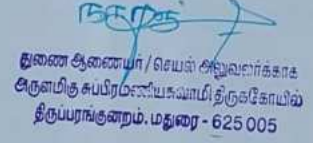 துணை ஆணையர்/செயல் அலுவலர்க்காக
அருள்மிகு சுப்பிரமணியசுவாமி திருக்கோயில்
திருப்பரங்குன்றம். மதுரை - 625 005